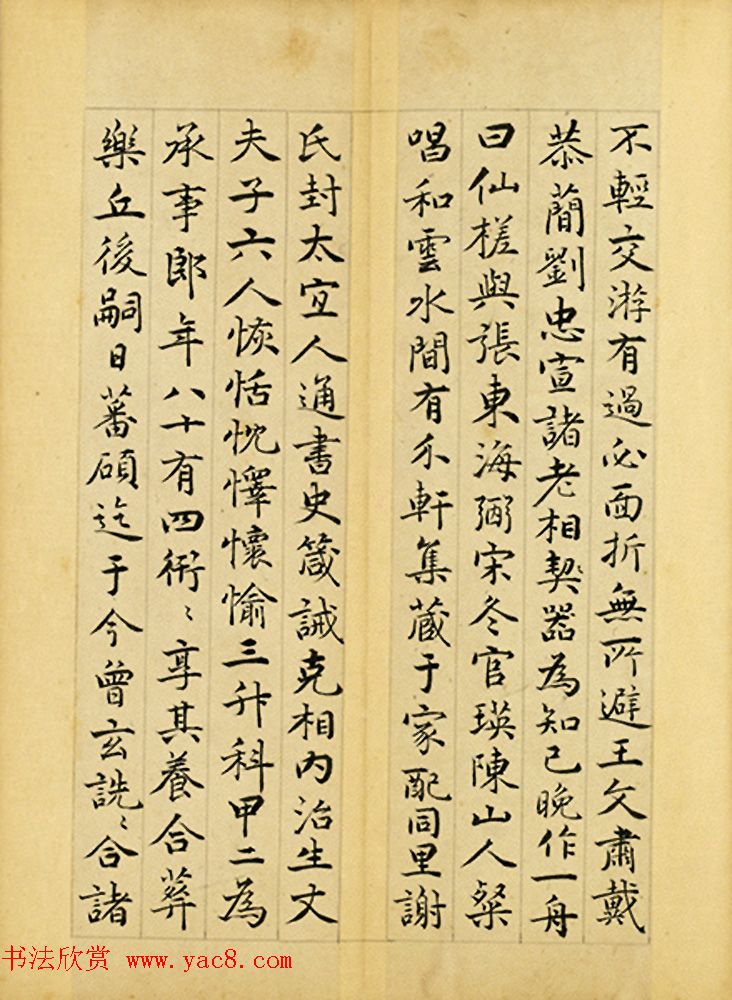 不輕交游有過必面折無所避王文肅戴
恭簡劉忠宣諸老相契器為知己晚作一舟
曰仙槎與張東海弼宋冬官瑛陳山人粲
唱和雲水間有禾軒集藏于家配同里謝
氏封太宜人通書史箴誡克相內治生丈
夫子六人恢恬忱懌懷愉三升科甲二為
承事郎年八十有四衎〻享其養合葬
樂丘後嗣日蕃碩迄于今曾玄詵〻合諸
书法欣赏 www.yac8.com